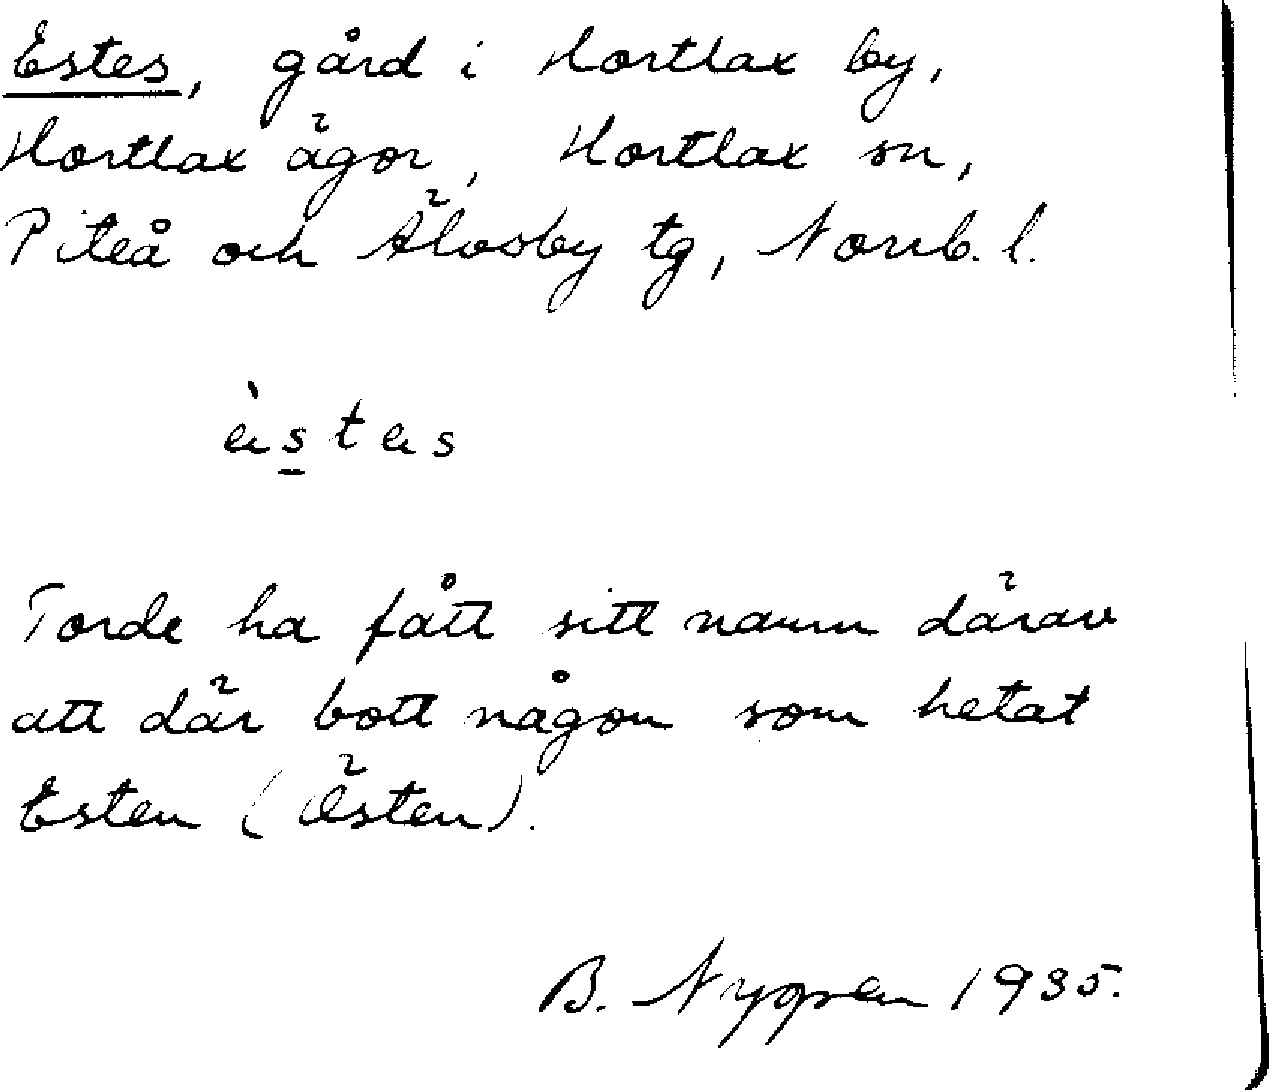 Estes, gård i Hortlax by,
Hortlax ägor, Hortlax sn,
Piteå och Älvsby tg, Norrb. l.
èstes
Torde ha fått sitt namn därav
att där bott någon som hetat
Esten (Östen).
B. Nygren 1935.